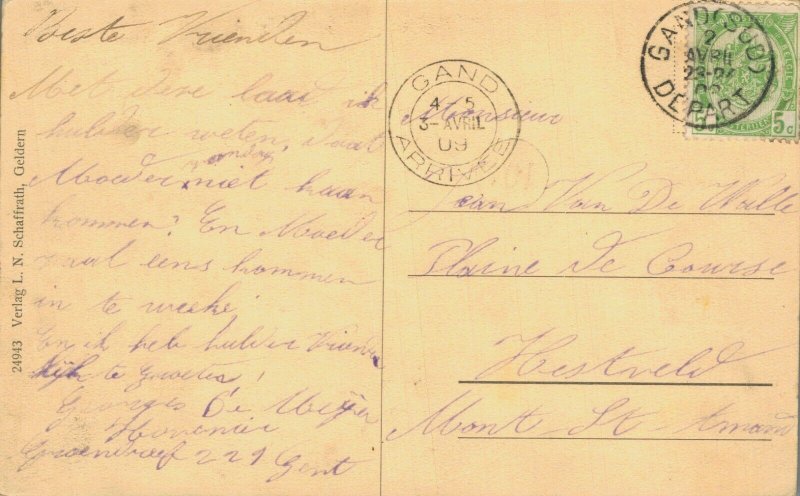 Beste Vrienden
Met deze laat ik
hulder weten, daat
Moeder zondag niet kaan
kommen? En Moeder
zaal eens kommen
in te weeke!
En ik heb hulder Vriende
lijk te groeten!
Georges De Meÿer
Hovenier
221 Gent
24943 Verlag L. N. Schaffrath, Geldern
GAND
4 5
3- AVRIL
09
ARRIVÉE
GAND (SUD)
2
AVRIL
23-24
09
DEPART
5c
Monsieur
Jean Van De Walle
Plaine de Course
Hestveld
Mont St-Amand